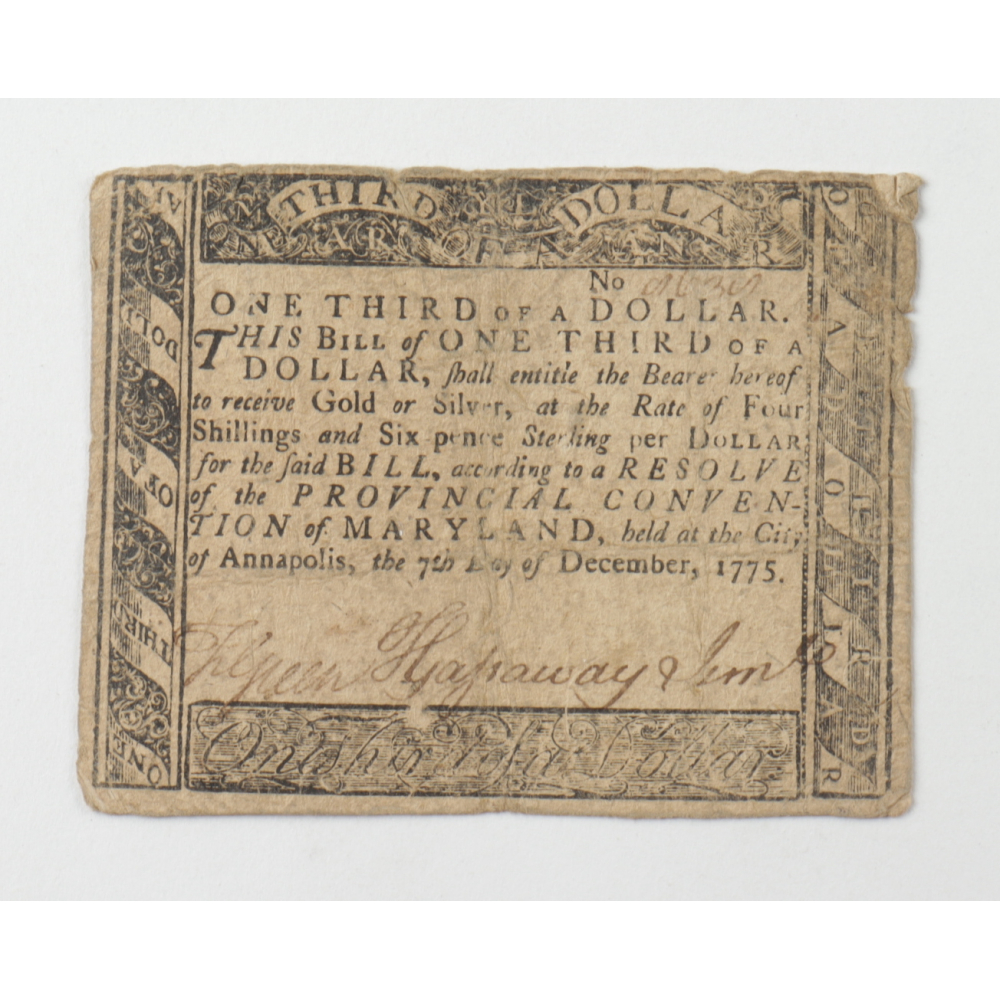 THIRD DOLLA
No
ONE THIRD OF A DOLLAR.
THIS BILL of ONE THIRD OF A
DOLLAR, ſhall entitle the Bearer hereof
to receive Gold or Silver, at the Rate of Four
Shillings and Six pence Sterling per DOLLAR
for the ſaid BILL, according to a RESOLVE
of the PROVINCIAL CONVEN-
TION of MARYLAND, held at the City
of Annapolis, the 7th Day of December, 1775.
One third of a Dollar
ONE THIRD OF A DOLL